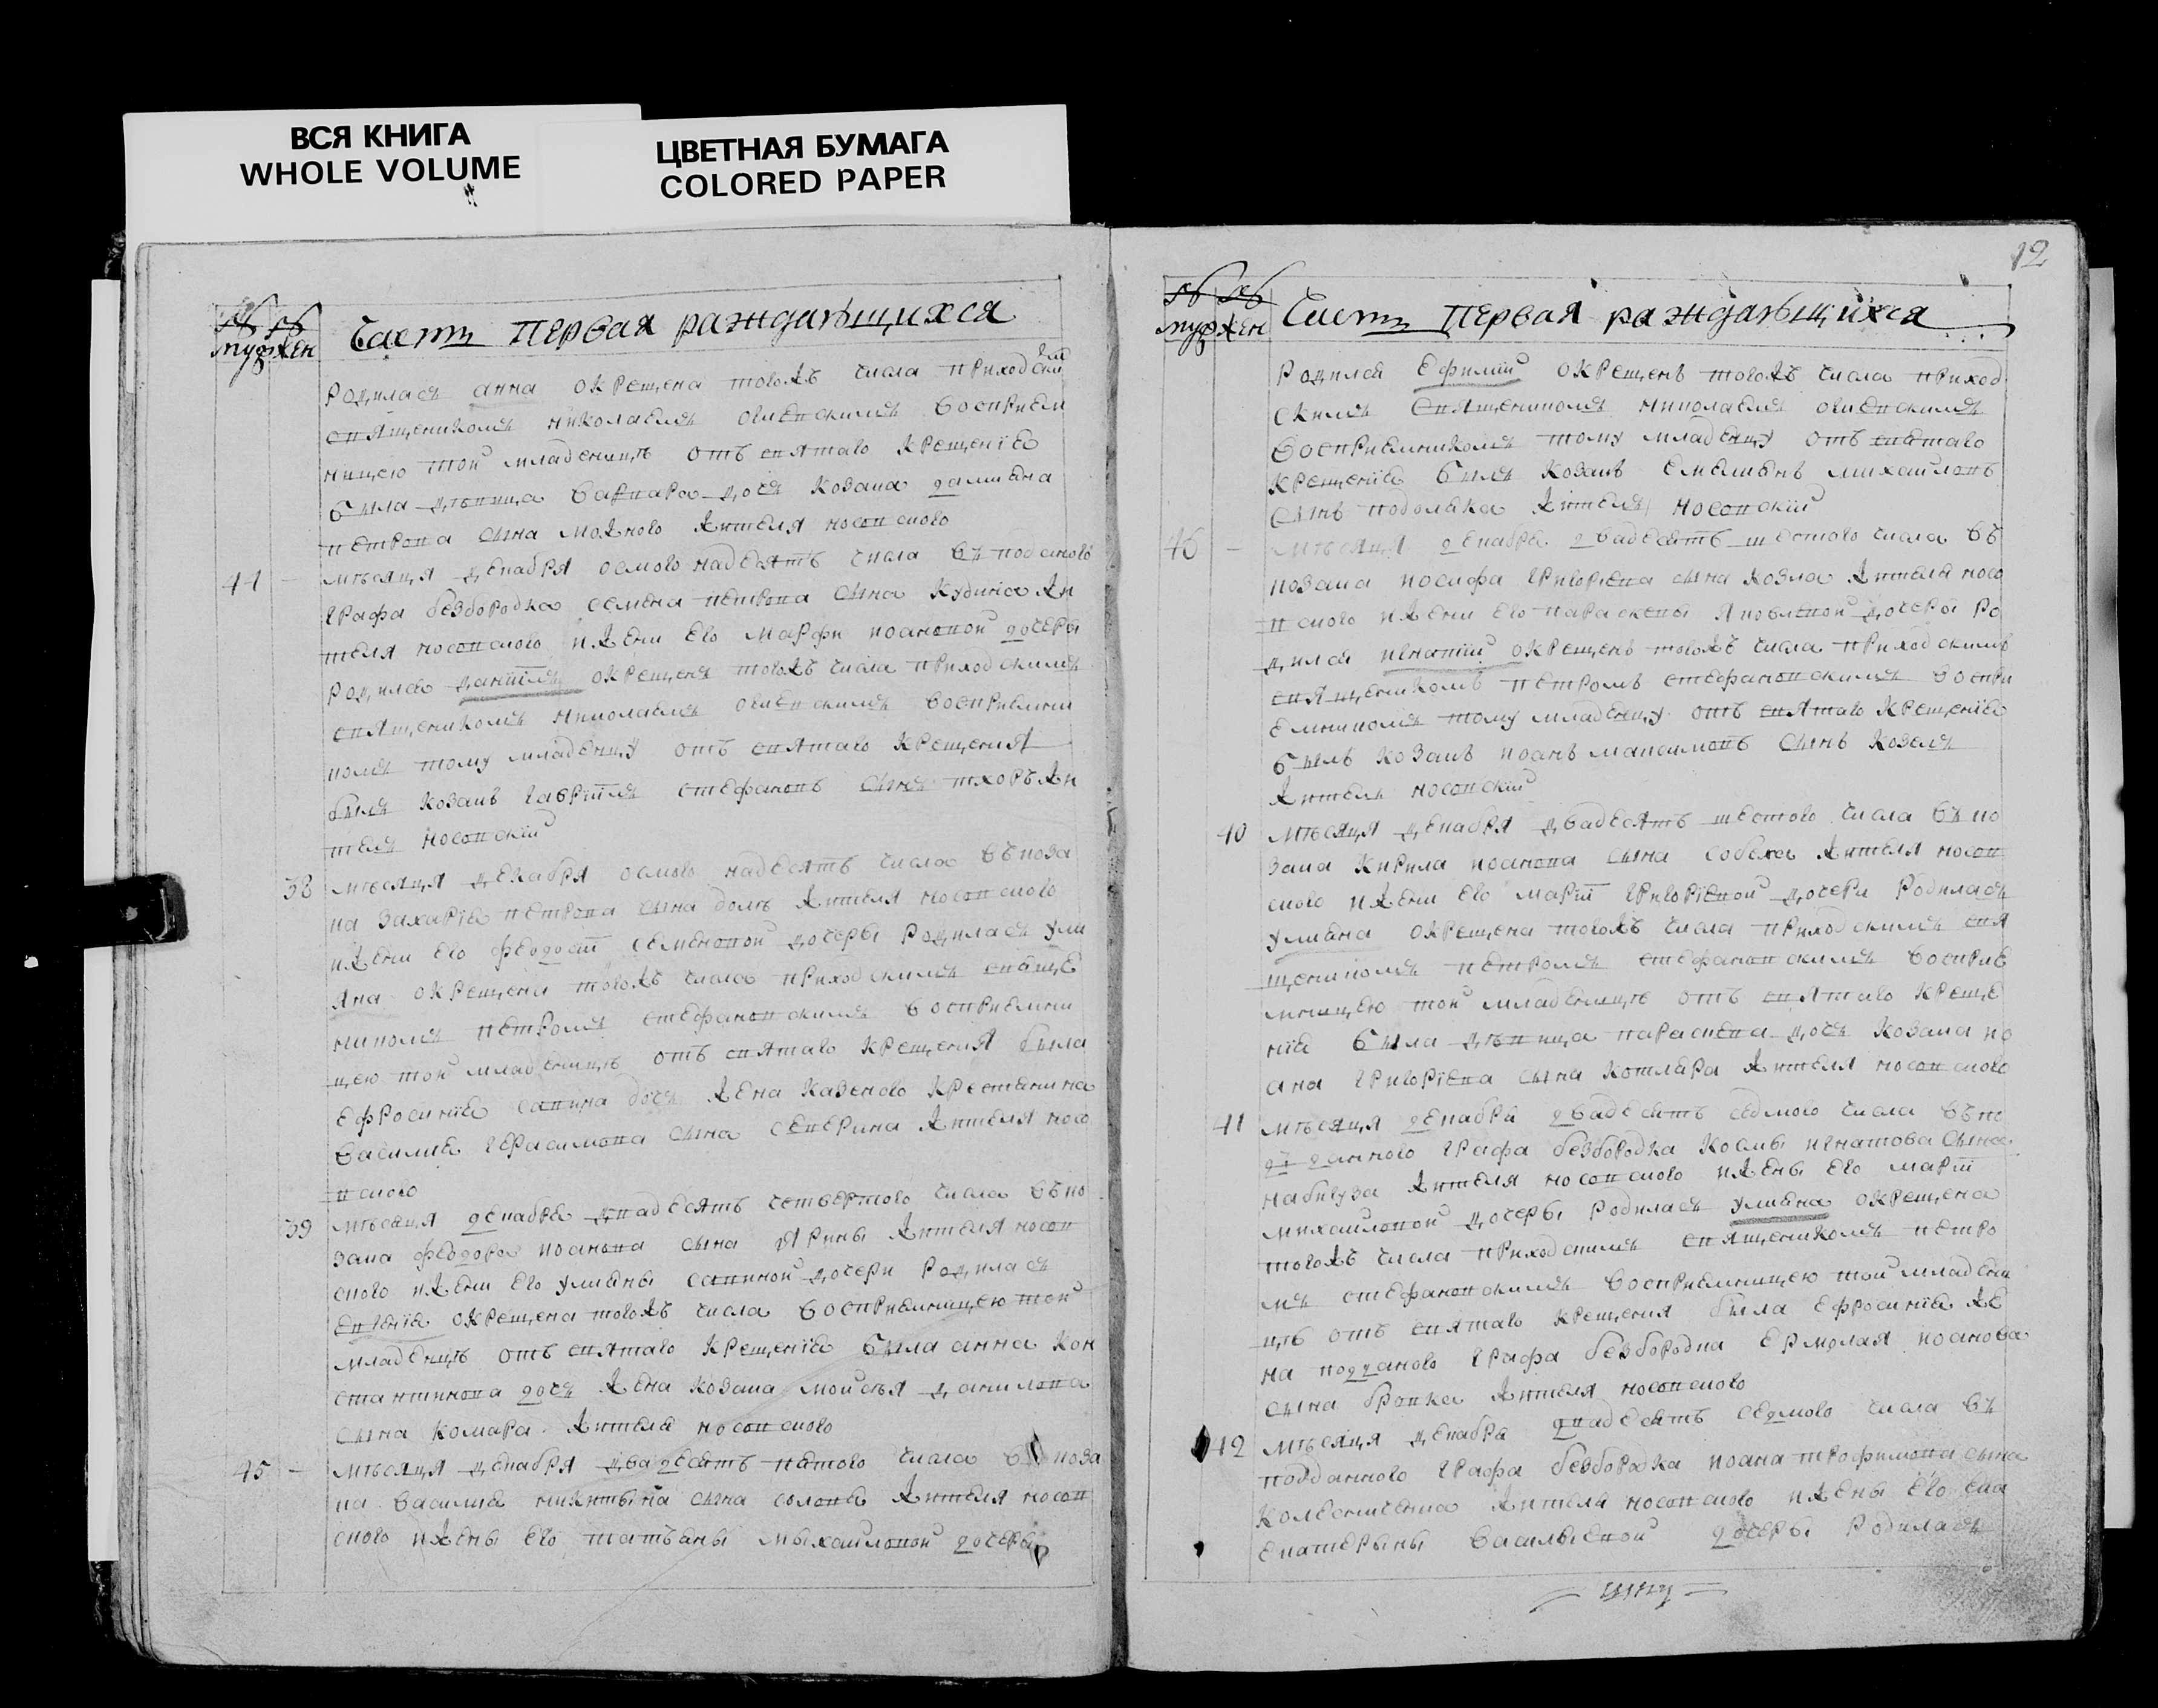 ВСЯ КНИГА
WHOLE VOLUME
ЦВЕТНАЯ БУМАГА
COLORED PAPER
муж жен Часть Первая раждающихся
Родилась анна окрещена тогожъ числа приходским
священикомъ николаемъ восприем
ницею той младеницѣ отъ святаго крещенїя
была дѣвица варвара дочь козака дамиана
петрова сына можного жителя носовского
44 – мѣсяця декабря осмого надесять числа въ подданого
графа безбородка семена петрова сына жи
теля носовского и жени его марфи иоановой дочери
родился даниїлъ окрещенъ тогожъ числа приходскимъ
священикомъ николаемъ восприемни
комъ тому младенцу отъ святаго крещения
былъ козакъ гавриїлъ стефановъ сынъ тхоръ жи
тель носовскїй
38 мѣсяця декабря осмого надесять числа въ коза
ка захарїя петрова сына жителя носовского
и жени его феодосїи семеновой дочери родилась ули
яна окрещена тогожъ числа приходскимъ сваще
никомъ петромъ стефановскимъ восприемни
цею той младеницѣ отъ святаго крещения была
ефросинїя савина дочь жена казеного крестянина
василия герасимова сына северина жителя носо
вского
39 мѣсяця декабря двадесять четвертого числа въ ко
зака феодора иоанова сына ярины жителя носов
ского и жени его улияны савиной дочери родилась
евгїя окрещена тогожъ числа восприемницею той
младенцѣ отъ святаго крещенїя была анна кон
стантинова дочь жена козака моисѣя данилова
сына комара жителя носовского
45 – мѣсяця декабря двадесять пятого числа въ коза
ка василия никитына сына солоня жителя носов
ского и жены его татъаны мыхайловой дочеры
12
муж жен Часть Первая раждающихся
Родился ефимїй окрещенъ тогожъ числа приход
скимъ священикомъ николаемъ
восприемникомъ тому младенцу отъ святаго
крещенїя былъ козакъ емелиянъ михайловъ
сынъ подоляка житель носовскїй
46 – мѣсяця декабря двадесять шестого числа въ
козака иосифа григорїева сына козла жителя носо
вского и жени его параскевы яковлевой дочеры ро
дился игнатїй окрещенъ тогожъ числа приходскимъ
священикомъ петромъ стефановскимъ воспри
емникомъ тому младенцу отъ святаго крещенїя
былъ козакъ иоанъ максимовъ сынъ козелъ
житель носовскїй
40 мѣсяця декабря двадесять шестого числа въ ко
зака кирила иоанова сына жителя носов
ского и жени его марїи григорїевой дочери родилась
улияна окрещена тогожъ числа приходскимъ свя
щеникомъ петромъ стефановскимъ восприе
мницею той младеницѣ отъ святаго креще
нїя была дѣвица параскева дочь козака ио
ана григорїева сына котляра жителя носовского
41 мѣсяця декабря двадесять седмого числа въ по
дданного графа безбородка космы игнатова сына
жителя носовского и жены его марїи
михайловой дочеры родилась улияна окрещена
тогожъ числа приходскимъ священикомъ петро
мъ стефановскимъ восприемницею той младени
цѣ отъ святаго крещения была ефросинїя же
на подданого графа безбородка ермолая иоанова
сына бровка жителя носовского
42 мѣсяця декабря двадесять седмого числа въ
подданного графа безбородка иоана трофимова сына
жителя носовского и жены его
екатерыны васильевой дочеры родилась